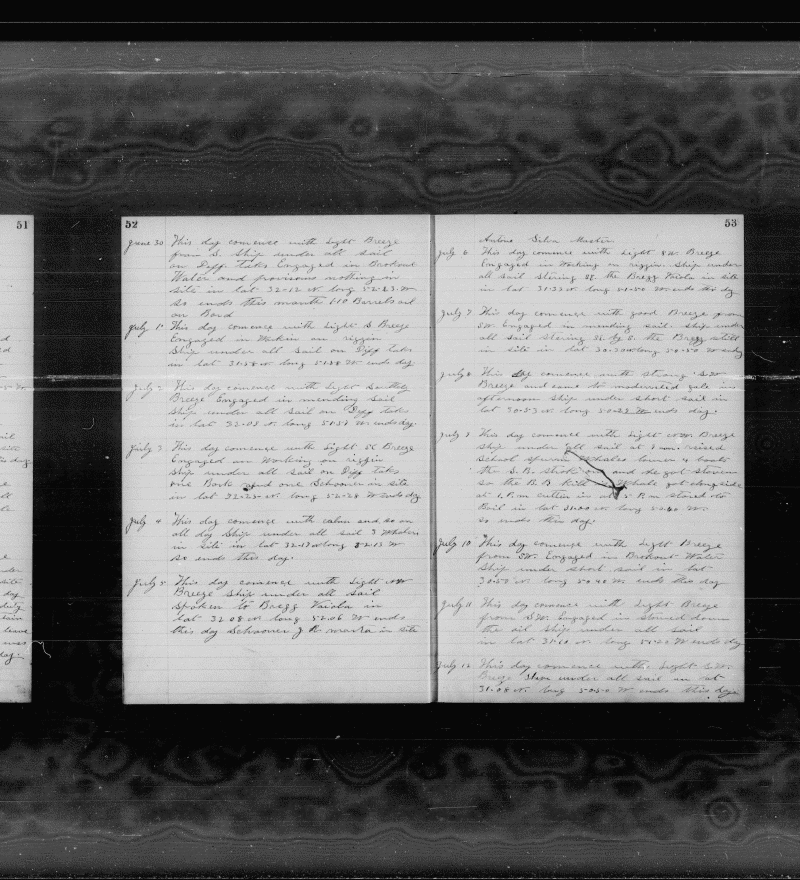 51
52
June 30 This day comence with Light Breeze
from S. Ship under all sail
on Diff Taks Engaged in Brokout
Water and provisions nothing in
site in lat 32-12 N long 52-23 W
so ends this month 110 Barrels oil
on Bord
July 1 This day comence with Light S Breeze
Eengaged in Mekin on riggin
Ship under all sail on Diff taks
in lat 31-58 N long 51-58 W ends day
July 2 This day comence with Light Southly
Breeze Engaged in mending sail
Ship under all sail on Diff taks
in lat 32-03 N long 51-57 W ends day.
July 3 This day comence with Light SE Breeze
Engaged on Working on riggin
Ship under all sail on Diff taks
one Bark and one Schooner in site
in lat 32-23 N long 52-28 W ends day
July 4 This day comence with calm and so on
all day Ship under all sail 3 Whalers
in site in lat 32-17 N long 52-13 W
so ends this day.
July 5 This day comence with Light NW
Breeze Ship under all sail
Spoken to Bregg Vaiola in
lat 32 08 N long 52-06 W ends
this day Schooner J. H. in site
53
Antone Silva Master
July 6 This day comence with Light SW Breeze
Engaged in Working on riggin. Ship under
all sail stering SE. the Bregg Vaiola in site
in lat 31-32 N long 51-50 W. ends this dy
July 7 This day comence with good Breeze from
SW. Engaged in mending sail. Ship under
all sail stering SE. by S. the Bregg still
in site in lat 30-30 N long 50-50 W ends
July 8 This day comence with strong SW
Breeze and came to moderated gale in
afternoon Ship under short sail in
lat 30-53 N long 50-22 W ends day.
July 9 This day comence with Light NW. Breeze
ship under all sail at 9 am raised
School Sperm Whales lower 4 boats
the S. B. Strok one and he got stoven
so the B. B. kill Whale got alongside
at 1. P.m cutten in at P.m stared to
Boil in lat 31-00 N long 50-40 W.
so ends this day.
July 10 This day comence with Light Breeze
from SW. Engaged in Brokout Water
Ship under short sail in lat
30-57 N. long 50-48 W. ends this day
July 11 This day comence with Light Breeze
from SW. Engaged in stowed down
the oil Ship under all sail
in lat 31-10 N long 51-00 W ends day
July 12 This day comence with Light S.W.
Breeze Ship under all sail in lat
31-08 N. long 50-50 W ends this day